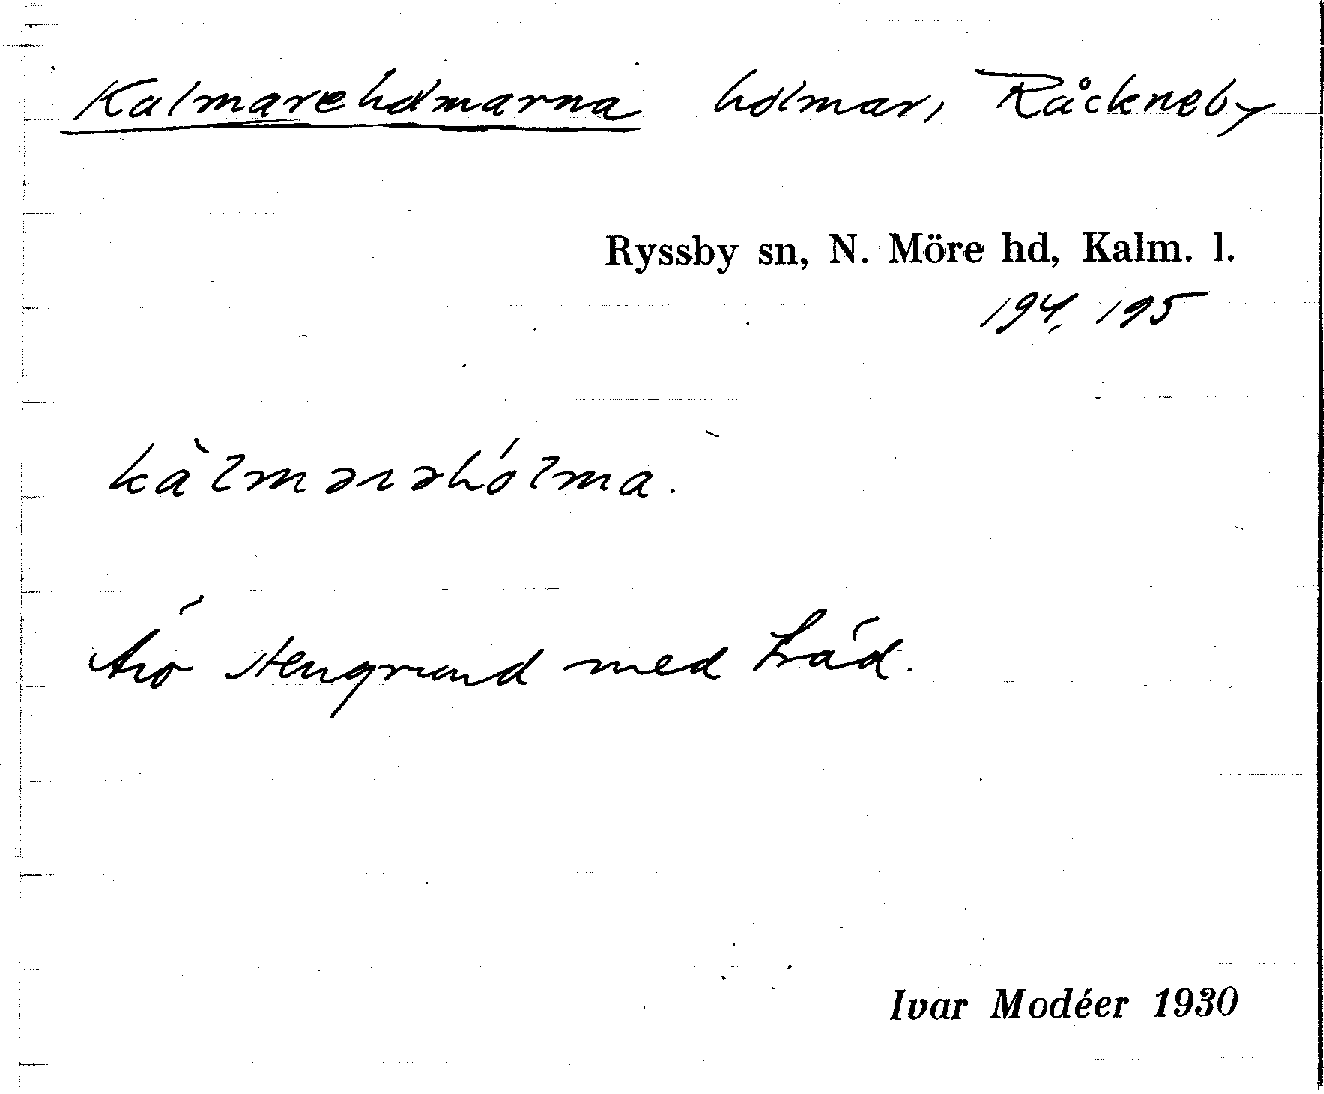 Kalmareholmarna holmar, Råckneby
Ryssby sn, N. Möre hd, Kalm. l.
194, 195
kàlmərəhólma.
Två stengrund med träd.
Ivar Modéer 1930